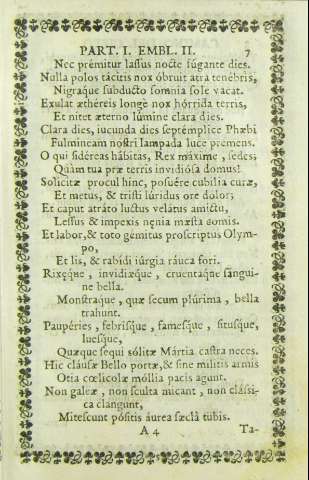 PART. I. EMBL. II. 7
Nec prémitur lassus nocte fúgante dies.
Nulla polos tácitis nox óbruit atra tenébris,
Nigraque subducto somnia sole vacat.
Exulat æthéreis longè nox hórrida terris,
Et nitet æterno lúmine clara dies.
Clara dies, iucunda dies septémplice Phœbi
Fulmineam nostri lampada luce premens.
O qui sidéreas hábitas, Rex máxime, sedes;
Quàm tua præ terris invidiósa domus!
Solicitæ procul hinc, posuére cubilia curæ,
Et metus, & tristi lúridus ore dolor;
Et caput atráto luctus velátus amíctu,
Lessus & impexis nęnia mæsta domis.
Et labor, & toto gémitus proscriptus Olym-
po,
Et lis, & rabidi iúrgia ráuca fori.
Rixęque, invidiæque, cruentæque sangui-
ne bella.
Monstraque, quæ secum plúrima, bella
trahunt.
Paupéries, febrisque, famesque, situsque,
luesque,
Quæque sequi sólitæ Mártia castra neces.
Hic cláusæ Bello portæ, & sine militis armis
Otia cœlicolæ móllia pacis agunt.
Non galeæ, non scuta micant, non clássi-
ca clangunt,
Mitescunt pósitis áurea sæclà tubis.
A 4 Ta-